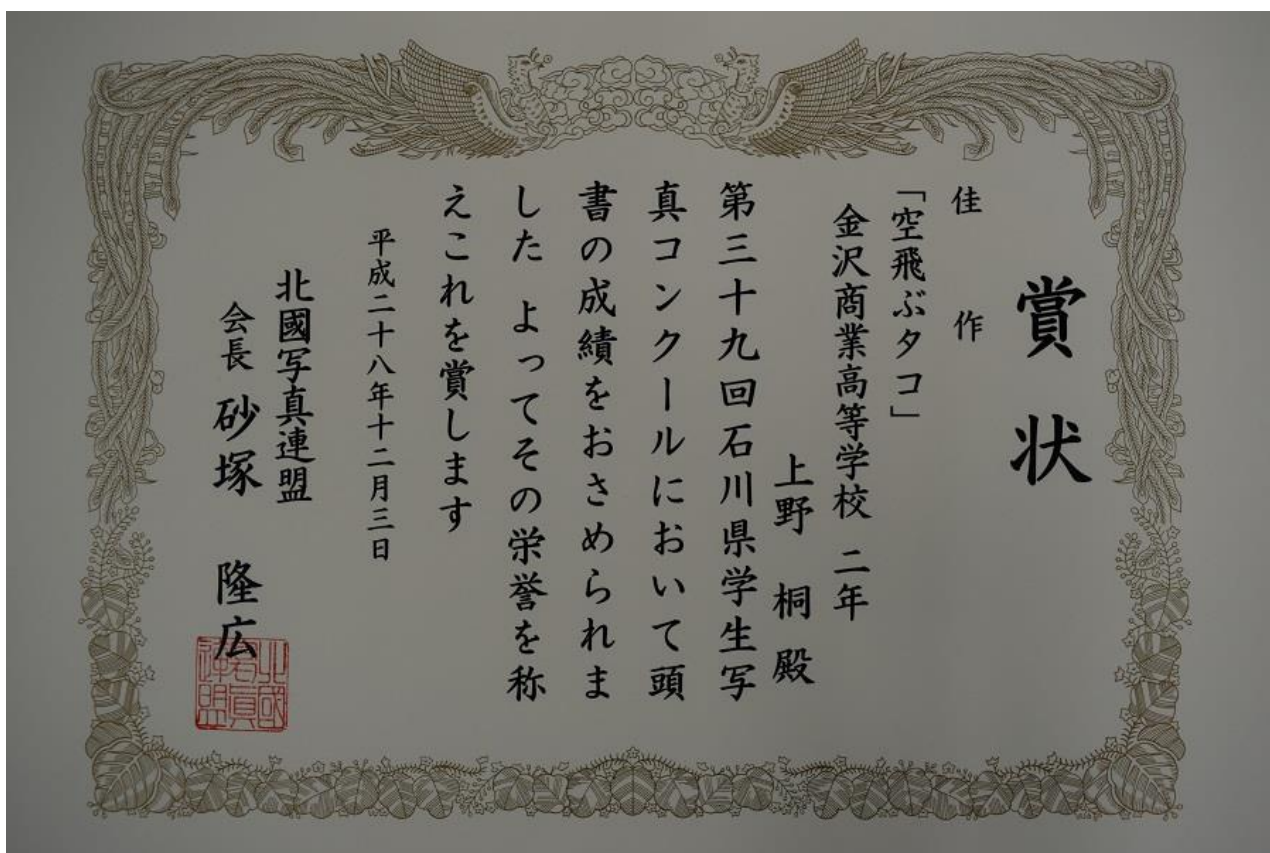 賞状
佳作
「空飛ぶタコ」
金沢商業高等学校 二年
上野 桐 殿
第三十九回石川県学生写
真コンクールにおいて頭
書の成績をおさめられま
した よってその栄誉を称
えこれを賞します
平成二十八年十二月三日
北國写真連盟
会長 砂塚 隆広
北國
写真
連盟